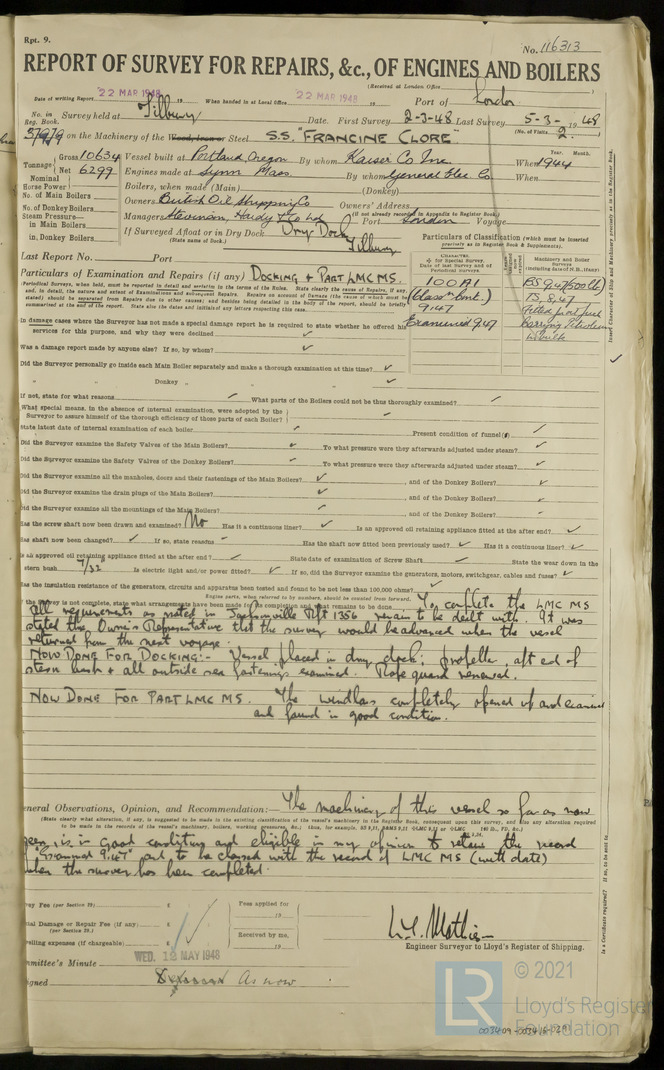 Rpt. 9.
No. 116313
REPORT OF SURVEY FOR REPAIRS, &c., OF ENGINES AND BOILERS
(Received at London Office
Date of writing Report 22 MAR 1948 19 When handed in at Local Office 22 MAR 1948 19 Port of London
No. in Reg. Book. Survey held at Tilbury Date. First Survey 2-3-48 Last Survey 5-3- 1948
(No. of Visits 2.)
37979 on the Machinery of the Wood, Iron or Steel S.S. "FRANCINE CLORE"
Tonnage Gross 10634 Vessel built at Portland Oregon By whom Kaiser Co Inc. When 1944
Year. Month.
Net 6299 Engines made at Lynn Mass By whom General Elec Co When
Nominal Horse Power Boilers, when made (Main) (Donkey)
No. of Main Boilers Owners British Oil Shipping Co Owners' Address
(if not already recorded in Appendix to Register Book.)
No. of Donkey Boilers Managers Stevinson Hardy & Co Ltd Port London Voyage
Steam Pressure— in Main Boilers If Surveyed Afloat or in Dry Dock Dry Dock Tilbury
(State name of Dock.)
in Donkey Boilers
Particulars of Classification (which must be inserted precisely as in Register Book & Supplements).
Last Report No. Port
Particulars of Examination and Repairs (if any) DOCKING & PART LMC MS.
CHARACTER
Machinery and Boiler Surveys
100A1
(Class Cont.)
9.47
Examined 9.47
BS 9.47
TS, 8.47
Fitted for oil fuel
Carrying Petroleum
in bulk
In damage cases where the Surveyor has not made a special damage report he is required to state whether he offered his
services for this purpose, and why they were declined ✓
Was a damage report made by anyone else? If so, by whom? ✓
Did the Surveyor personally go inside each Main Boiler separately and make a thorough examination at this time? ✓
" " Donkey " " " ✓
If not, state for what reasons ✓ What parts of the Boilers could not be thus thoroughly examined? ✓
What special means, in the absence of internal examination, were adopted by the
Surveyor to assure himself of the thorough efficiency of those parts of each Boiler? ✓
State latest date of internal examination of each boiler ✓ Present condition of funnel(s) ✓
Did the Surveyor examine the Safety Valves of the Main Boilers? ✓ To what pressure were they afterwards adjusted under steam? ✓
Did the Surveyor examine the Safety Valves of the Donkey Boilers? ✓ To what pressure were they afterwards adjusted under steam? ✓
Did the Surveyor examine all the manholes, doors and their fastenings of the Main Boilers? ✓, and of the Donkey Boilers? ✓
Did the Surveyor examine the drain plugs of the Main Boilers? ✓, and of the Donkey Boilers? ✓
Did the Surveyor examine all the mountings of the Main Boilers? ✓, and of the Donkey Boilers? ✓
Has the screw shaft now been drawn and examined? No Has it a continuous liner? ✓ Is an approved oil retaining appliance fitted at the after end? ✓
Has shaft now been changed? ✓ If so, state reasons ✓ Has the shaft now fitted been previously used? ✓ Has it a continuous liner? ✓
Is an approved oil retaining appliance fitted at the after end? ✓ State date of examination of Screw Shaft ✓ State the wear down in the
stern bush 7/32 Is electric light and/or power fitted? ✓ If so, did the Surveyor examine the generators, motors, switchgear, cables and fuses? ✓
Has the insulation resistance of the generators, circuits and apparatus been tested and found to be not less than 100,000 ohms? ✓
To complete the LMC MS
all requirements as noted in Jacksonville Rpt 1356 remain to be dealt with. It was
stated the Owner's Representative that the survey would be advanced when the vessel
returned from the next voyage.
NOW DONE FOR DOCKING:- Vessel placed in dry dock; propeller, aft end of
stern bush & all outside sea fastenings examined. Rope guard renewed.
NOW DONE FOR PART LMC MS. The windlass completely opened up and examined
and found in good condition.
General Observations, Opinion, and Recommendation:— The machinery of this vessel so far as now
seen is in good condition and eligible in my opinion to retain the record
of "Examined 9.47" and to be classed with the record of LMC MS (with date)
when the survey has been completed.
Survey Fee (per Section 29) £ Fees applied for
19
Special Damage or Repair Fee (if any) £
(per Section 29.)
Received by me.
Travelling expenses (if chargeable) £ 19
Engineer Surveyor to Lloyd's Register of Shipping.
Committee's Minute WED. 12 MAY 1948
Assigned As now
Is a Certificate required? If so, to be sent to
Insert Character of Ship and Machinery precisely as in the Register Book.
LR
© 2021
Lloyd's Register
Foundation